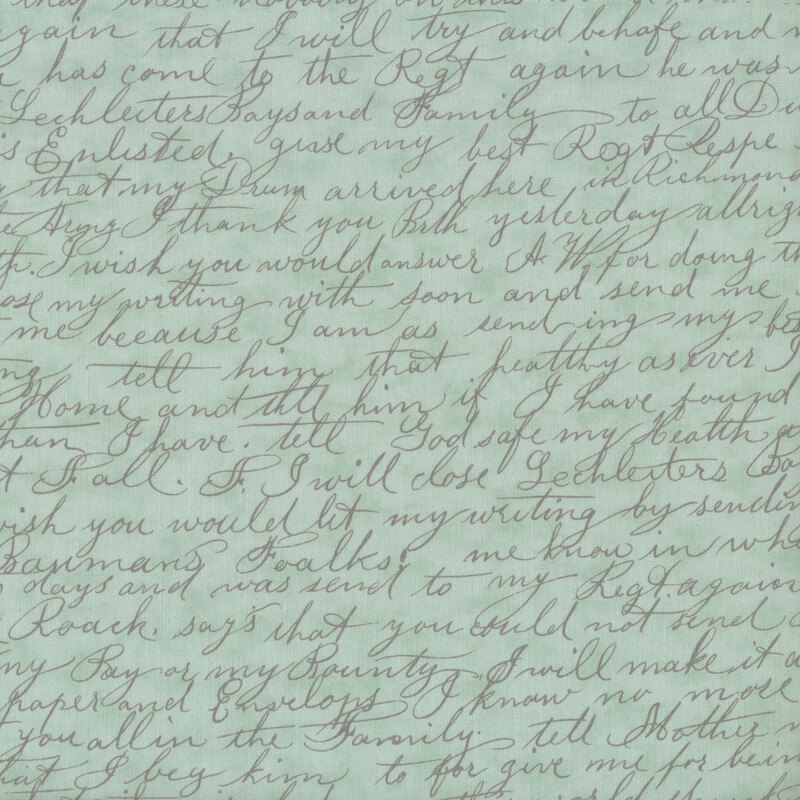 that these nobody
again that I will try and behafe and
has come to the Regt again he was
Lechleiters Bays and Family to all
is Enlisted, give my best Regt Respe
that my Drum arrived here in Richmond
Army I thank you Both yesterday allrig
I wish you would answer A. W. for doing th
my writing with soon and send me
me because I am as sending my bes
tell him that healthy as ever I
Home and till him if I have found
than I have. tell God safe my Health
I all. F. I will close Lechleiters Ba
wish you would let my writing by sendin
Baumans Foalks. me know in wh
days and was send to my Regt. again
Roach. say's that you could not send
my Pay or my Bounty, I will make it
paper and Envelops I know no more
you all in the Family. tell Mother
that I beg him to for give me for bein
the world it